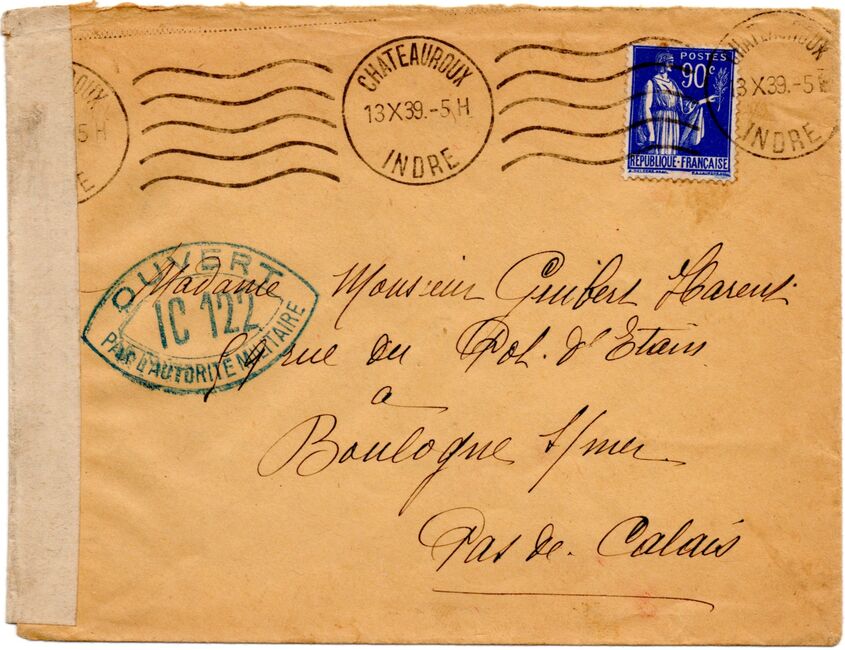 CHATEAUROUX
13 X 39.-5 H
INDRE
POSTES
90c
REPUBLIQUE-FRANÇAISE
CHATEAUROUX
13 X 39.-5
INDRE
OUX
5 H
E
OUVERT
IC 122
PAR L'AUTORITÉ MILITAIRE
Madame Monsieur Guibert Harent
rue du Pot. d'Etain
a
Boulogne s/mer.
Pas de. Calais